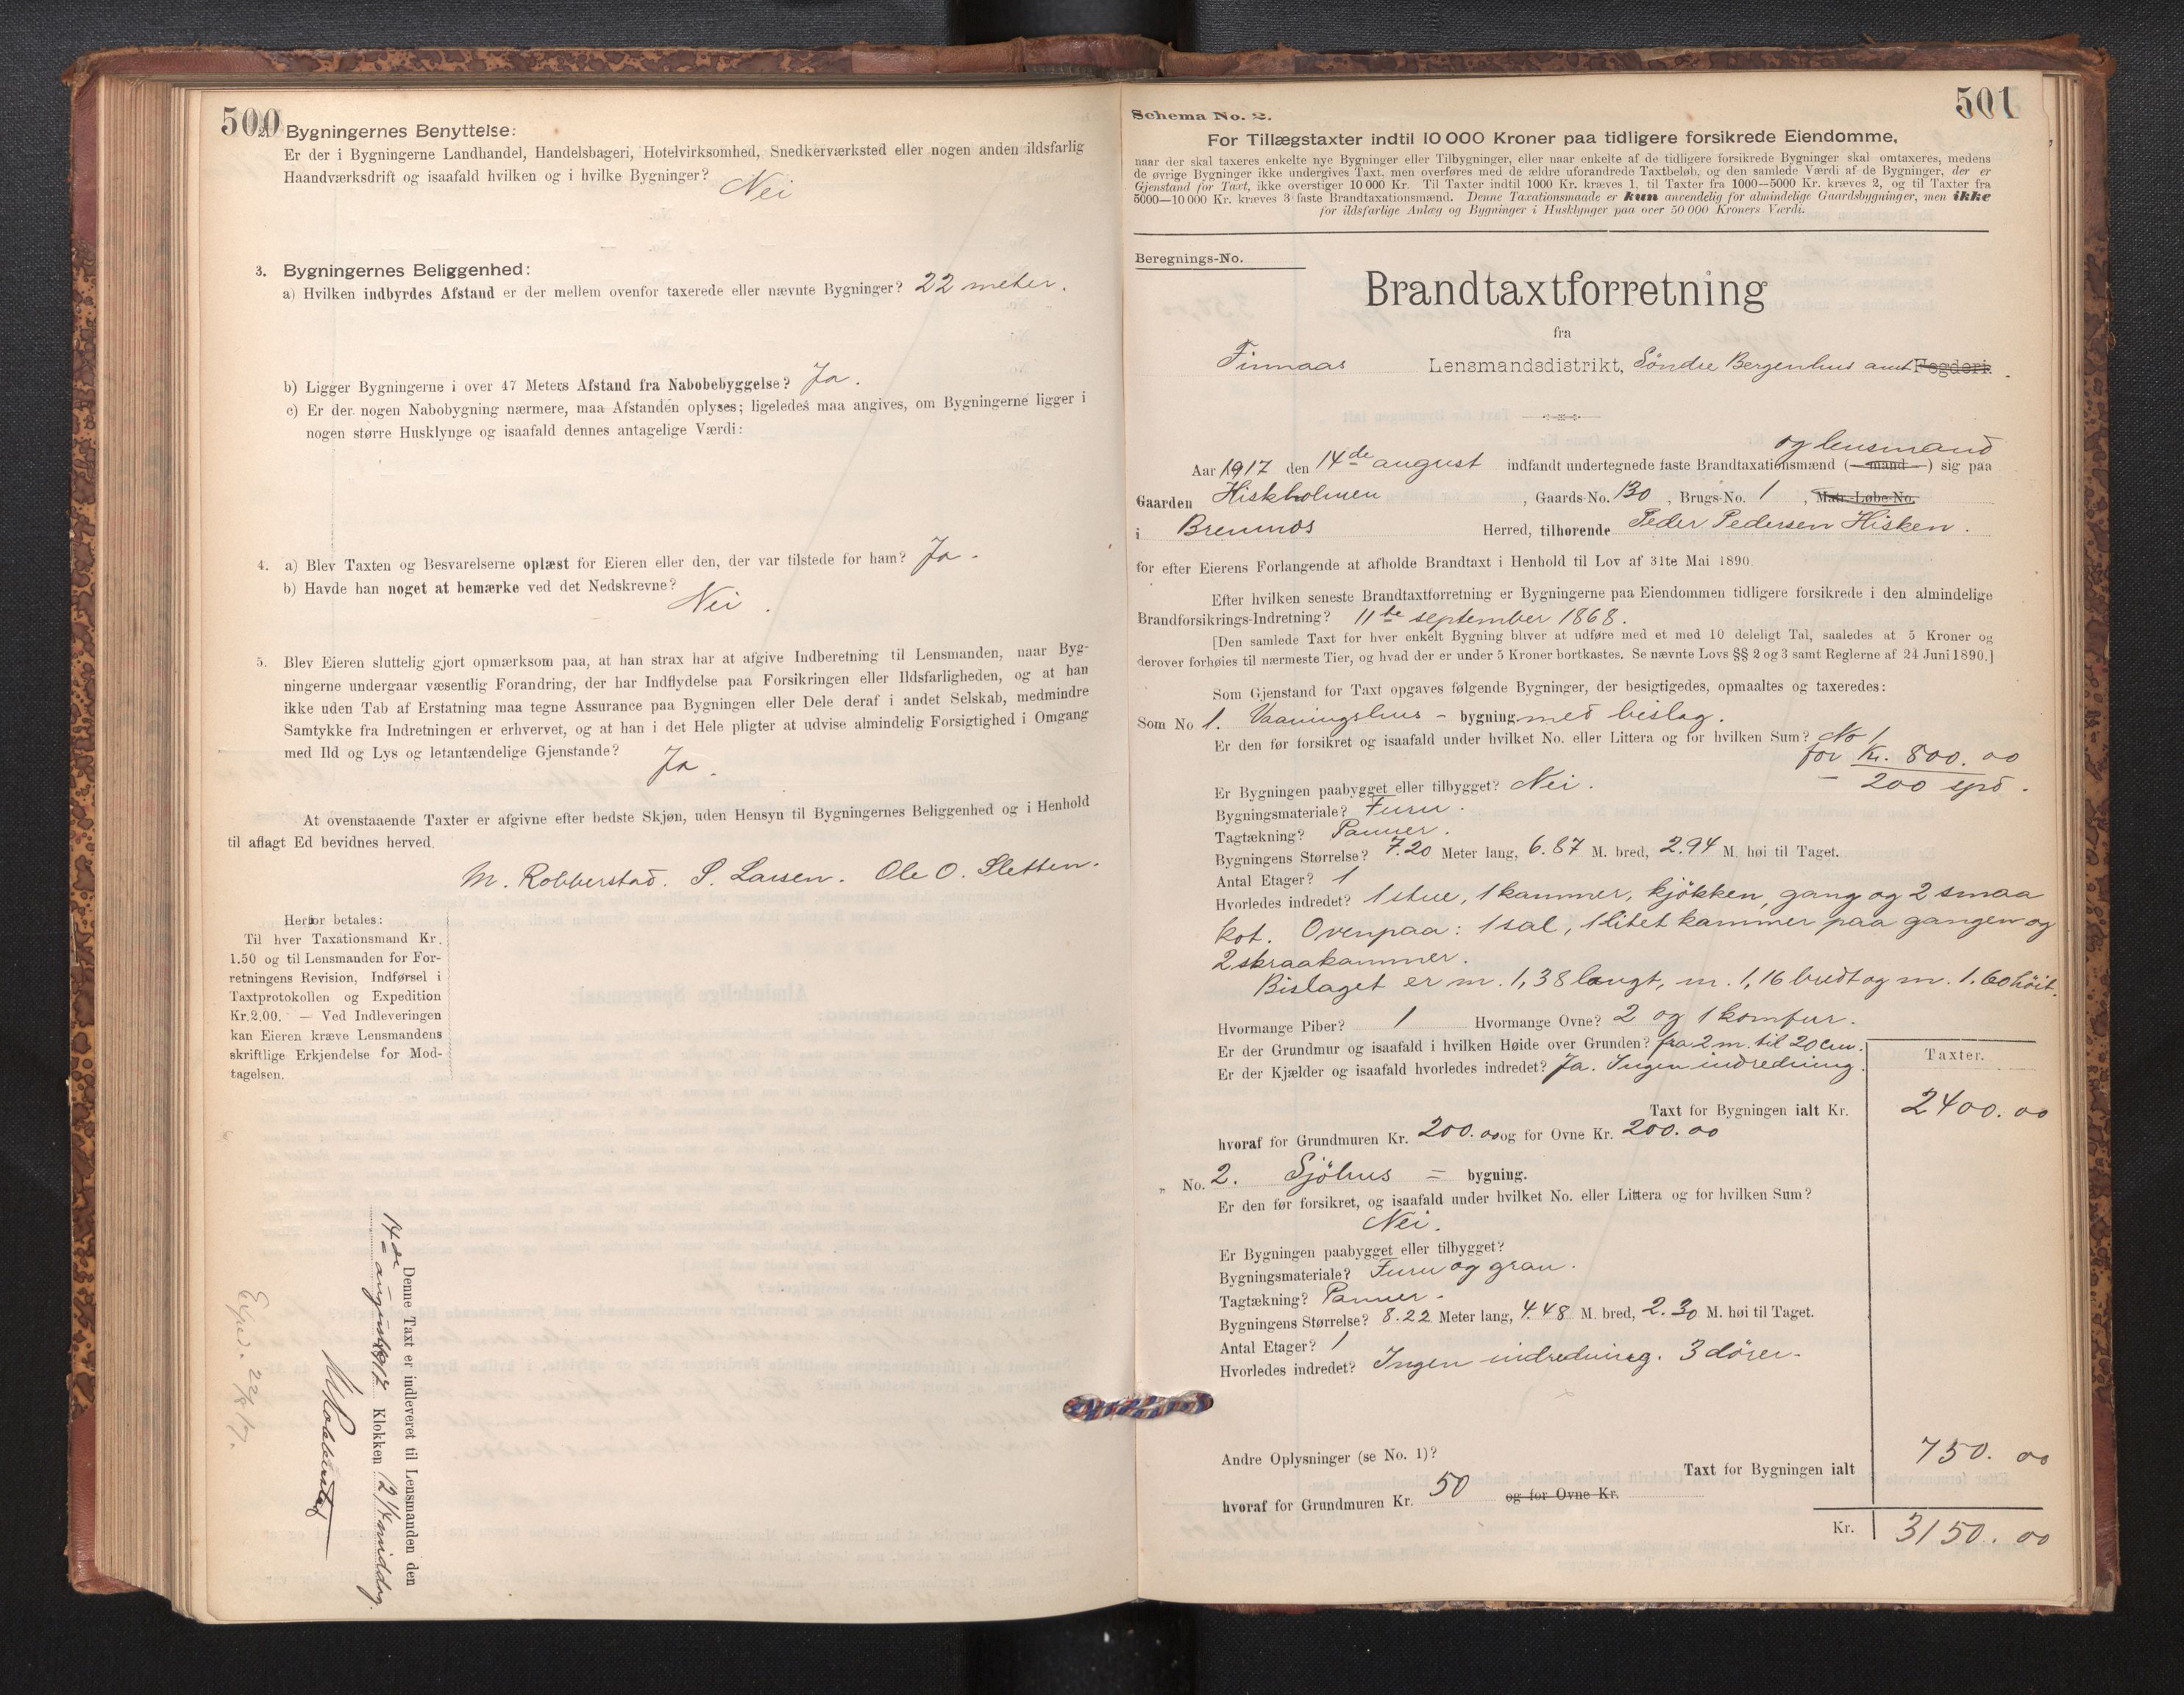 500
2. Bygningernes Benyttelse:
Er der i Bygningerne Landhandel, Handelsbageri, Hotelvirksomhed, Snedkerværksted eller nogen anden ildsfarlig
Haandværksdrift og isaafald hvilken og i hvilke Bygninger? Nei
3. Bygningernes Beliggenhed:
a) Hvilken indbyrdes Afstand er der mellem ovenfor taxerede eller nævnte Bygninger? 22 meter.
b) Ligger Bygningerne i over 47 Meters Afstand fra Nabobebyggelse? Ja.
c) Er der nogen Nabobygning nærmere, maa Afstanden oplyses; ligeledes maa angives, om Bygningerne ligger i
nogen større Husklynge og isaafald dennes antagelige Værdi:
4. a) Blev Taxten og Besvarelserne oplæst for Eieren eller den, der var tilstede for ham? Ja.
b) Havde han noget at bemærke ved det Nedskrevne?
Nei.
5. Blev Eieren sluttelig gjort opmærksom paa, at han strax har at afgive Indberetning til Lensmanden, naar Byg-
ningerne undergaar væsentlig Forandring, der har Indflydelse paa Forsikringen eller Ildsfarligheden, og at han
ikke uden Tab af Erstatning maa tegne Assurance paa Bygningen eller Dele deraf i andet Selskab, medmindre
Samtykke fra Indretningen er erhvervet, og at han i det Hele pligter at udvise almindelig Forsigtighed i Omgang
med Ild og Lys og letantændelige Gjenstande? Ja.
At ovenstaaende Taxter er afgivne efter bedste Skjøn, uden Hensyn til Bygningernes Beliggenhed og i Henhold
til aflagt Ed bevidnes herved.
M. Robberstad. S. Larsen. Ole O. Sletten.
Herfor betales:
Til hver Taxationsmand Kr.
1.50 og til Lensmanden for For-
retningens Revision, Indførsel i
Taxtprotokollen og Expedition
Kr. 2.00. — Ved Indleveringen
kan Eieren kræve Lensmandens
skriftlige Erkjendelse for Mod-
tagelsen.
Denne Taxt er indleveret til Lensmanden den
14de august 1917 Klokken 2 1/4 middag.
M Robberstad
Exped. 22/8 17.
501
Schema No. 2.
For Tillægstaxter indtil 10 000 Kroner paa tidligere forsikrede Eiendomme,
naar der skal taxeres enkelte nye Bygninger eller Tilbygninger, eller naar enkelte af de tidligere forsikrede Bygninger skal omtaxeres, medens
de øvrige Bygninger ikke undergives Taxt, men overføres med de ældre uforandrede Taxtbeløb, og den samlede Værdi af de Bygninger, der er
Gjenstand for Taxt, ikke overstiger 10 000 Kr. Til Taxter indtil 1000 Kr. kræves 1, til Taxter fra 1000—5000 Kr. kræves 2, og til Taxter fra
5000—10 000 Kr. kræves 3 faste Brandtaxationsmænd. Denne Taxationsmaade er kun anvendelig for almindelige Gaardsbygninger, men ikke
for ildsfarlige Anlæg og Bygninger i Husklynger paa over 50 000 Kroners Værdi.
Beregnings-No.
Brandtaxtforretning
fra
Finnaas Lensmandsdistrikt, Söndre Bergenhus amt Fogderi.
og lensmand
Aar 1917 den 14de august indfandt undertegnede faste Brandtaxationsmænd (—mand—) sig paa
Gaarden Hiskholmen, Gaards-No. 130, Brugs-No. 1, Matr.-Løbe-No.
i Bremnes Herred, tilhørende Peder Pedersen Hisken.
for efter Eierens Forlangende at afholde Brandtaxt i Henhold til Lov af 31te Mai 1890.
Efter hvilken seneste Brandtaxtforretning er Bygningerne paa Eiendommen tidligere forsikrede i den almindelige
Brandforsikrings-Indretning? 11te september 1868.
[Den samlede Taxt for hver enkelt Bygning bliver at udføre med et med 10 deleligt Tal, saaledes at 5 Kroner og
derover forhøies til nærmeste Tier, og hvad der er under 5 Kroner bortkastes. Se nævnte Lovs §§ 2 og 3 samt Reglerne af 24 Juni 1890.]
Som Gjenstand for Taxt opgaves følgende Bygninger, der besigtigedes, opmaaltes og taxeredes:
Som No 1. Vaaningshus - bygning med bislag.
Er den før forsikret og isaafald under hvilket No. eller Littera og for hvilken Sum? No 1
for Kr. 800.00
200 spd.
Er Bygningen paabygget eller tilbygget? Nei.
Bygningsmateriale? Furu.
Tagtækning? Panner.
Bygningens Størrelse? 7.20 Meter lang, 6.87 M. bred, 2.94 M. høi til Taget.
Antal Etager? 1
Hvorledes indredet? 1 stue, 1 kammer, kjökken, gang og 2 smaa
kot. Ovenpaa: 1 sal, 1 litet kammer paa gangen og
2 skraakammer.
Bislaget er m. 1,38 langt, m. 1,16 bredt og m. 1.60 höit.
Hvormange Piber? 1 Hvormange Ovne? 2 og 1 komfur.
Er der Grundmur og isaafald i hvilken Høide over Grunden? fra 2 m. til 20 cm.
Er der Kjælder og isaafald hvorledes indredet? Ja. Ingen indredning.
Taxter.
Taxt for Bygningen ialt Kr. 2400.00
hvoraf for Grundmuren Kr. 200.00 og for Ovne Kr. 200.00
„ No. 2. Sjöhus = bygning.
Er den før forsikret, og isaafald under hvilket No. eller Littera og for hvilken Sum?
Nei.
Er Bygningen paabygget eller tilbygget?
Bygningsmateriale? Furu og gran.
Tagtækning? Panner.
Bygningens Størrelse? 8.22 Meter lang, 4.48 M. bred, 2.30 M. høi til Taget.
Antal Etager? 1
Hvorledes indredet? Ingen indredning. 3 dörer.
Andre Oplysninger (se No. 1)?
Taxt for Bygningen ialt 750.00
hvoraf for Grundmuren Kr. 50 og for Ovne Kr.
Kr. 3150.00